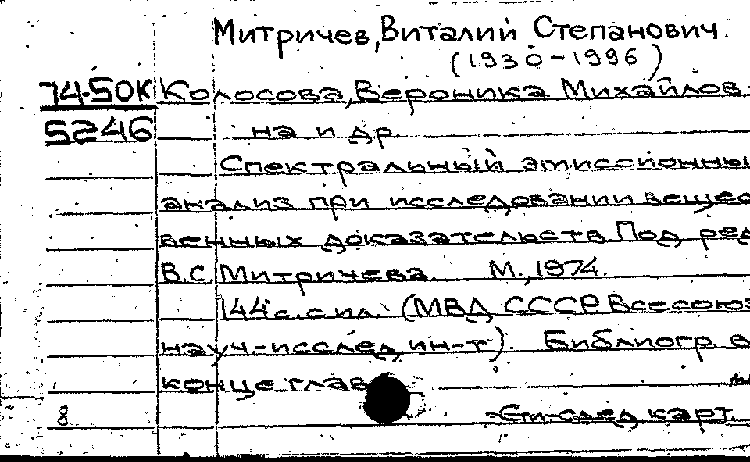 Митричев, Виталий Степанович
(1930-1996)
74-50К Колосова, Вероника Михайлов-
5246 на и др.
Спектральный эмиссионный
анализ при исследовании вещес
венных доказательств. Под ред
В.С. Митричева. М., 1974.
144 с. с ил. (МВД СССР. Всесоюз
науч.-исслед. ин-т). Библиогр. в
конце глав
8 См. след. карт.